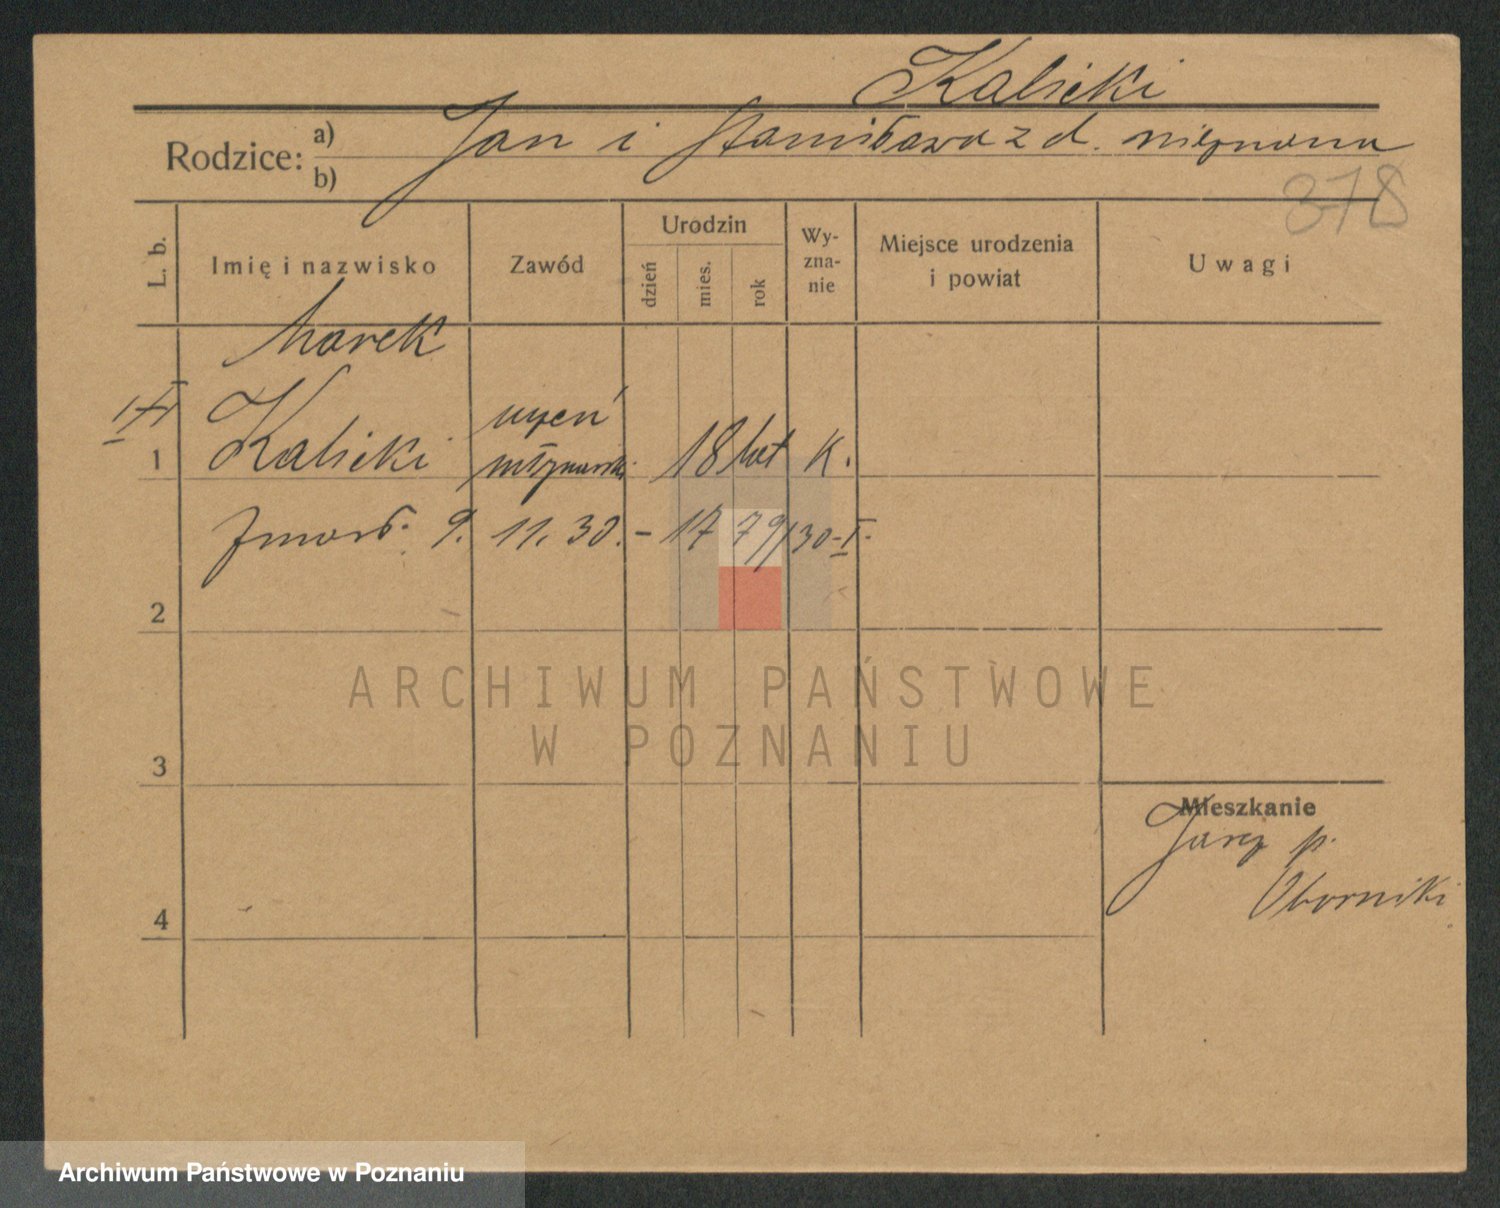 Kalicki
Rodzice: a) Jan i Stanisława z d. nieznana
b)
378
L. b.
Imię i nazwisko
Zawód
Urodzin
dzień
mies.
rok
Wy-
zna-
nie
Miejsce urodzenia
i powiat
Uwagi
Marek
1 Kalicki
uczeń
młynarski
18 lat
K.
Zmarł. 9. 11. 30. - 1779/30-I.
2
3
4
Mieszkanie
p.
Oborniki
ARCHIWUM PAŃSTWOWE
W POZNANIU
Archiwum Państwowe w Poznaniu